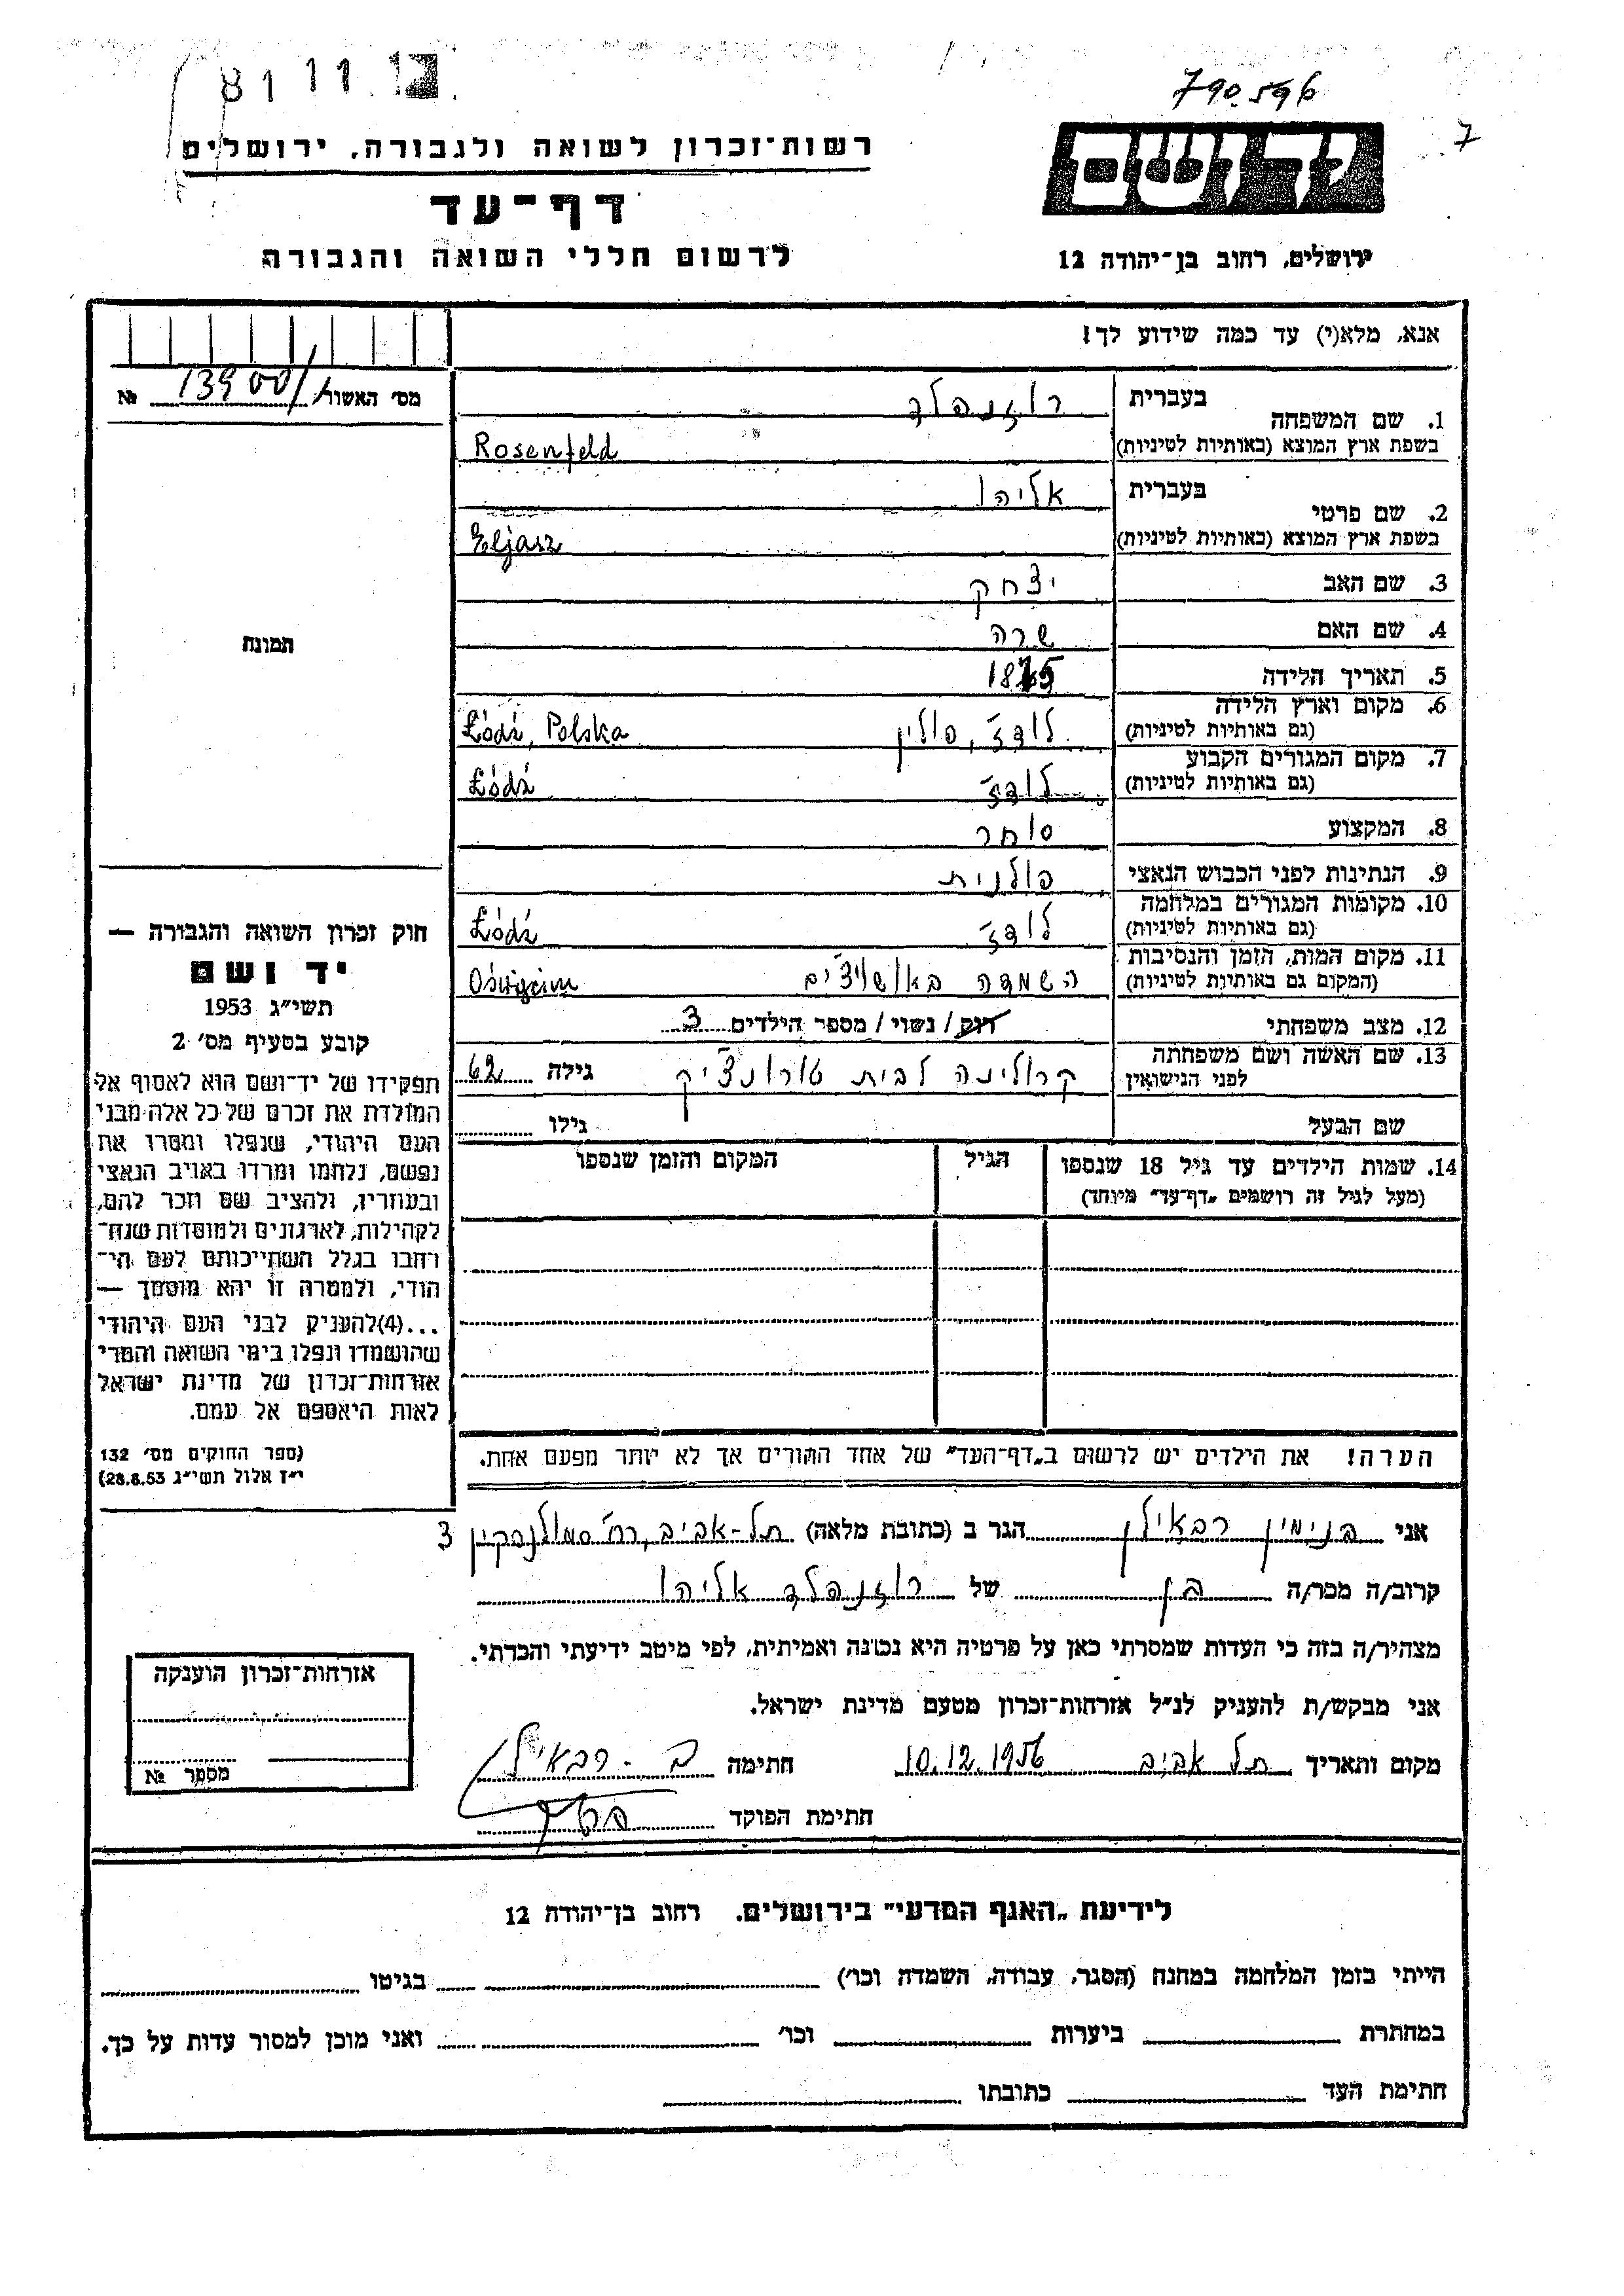 81 11.12.
790.596
7
רשות־זכרון לשואה ולגבורה, ירושלים
דף־עד
לרשום חללי השואה והגבורה
יד ושם
ירושלים, רחוב בן־יהודה 12
אנא, מלא(י) עד כמה שידוע לך!
מס׳ האשור 13900/1 №
תמונה
1. שם המשפחה
בעברית רוזנפלד
בשפת ארץ המוצא (באותיות לטיניות) Rosenfeld
2. שם פרטי
בעברית אליהו
בשפת ארץ המוצא (באותיות לטיניות) Eljasz
3. שם האב יצחק
4. שם האם שרה
5. תאריך הלידה
6. מקום וארץ הלידה
(גם באותיות לטיניות) לודז׳, פולין Łódź, Polska
7. מקום המגורים הקבוע
(גם באותיות לטיניות) לודז׳ Łódź
8. המקצוע סוחר
9. הנתינות לפני הכבוש הנאצי פולנית
10. מקומות המגורים במלחמה
(גם באותיות לטיניות) לודז׳ Łódź
11. מקום המות, הזמן והנסיבות
(המקום גם באותיות לטיניות) השמדה באושויצ׳ים Oświęcim
12. מצב משפחתי רוק / נשוי / מספר הילדים 3
13. שם האשה ושם משפחתה
לפני הנישואין קרולינה לבית טורונצ׳יק גילה 62
שם הבעל גילו
14. שמות הילדים עד גיל 18 שנספו הגיל המקום והזמן שנספו
(מעל לגיל זה רושמים „דף־עד״ מיוחד)
הערה! את הילדים יש לרשום ב„דף־העד״ של אחד ההורים אך לא יותר מפעם אחת.
חוק זכרון השואה והגבורה —
יד ושם
תשי״ג 1953
קובע בסעיף מס׳ 2
תפקידו של יד־ושם הוא לאסוף אל
המולדת את זכרם של כל אלה מבני
העם היהודי, שנפלו ומסרו את
נפשם, נלחמו ומרדו באויב הנאצי
ובעוזריו, ולהציב שם וזכר להם,
לקהילות, לארגונים ולמוסדות שנח־
רחבו בגלל השתייכותם לעם הי־
הודי, ולמטרה זו יהא מוסמך —
...(4)להעניק לבני העם היהודי
שהושמדו ונפלו בימי השואה והמרי
אזרחות־זכרון של מדינת ישראל
לאות היאספם אל עמם.
(ספר החוקים מס׳ 132
י״ז אלול תשי״ג 28.8.53)
אני בנימין רבאילן הגר ב (כתובת מלאה) תל-אביב, רח׳ סמולנסקין 3
קרוב/ה מכר/ה בן של רוזנפלד אליהו
מצהיר/ה בזה כי העדות שמסרתי כאן על פרטיה היא נכונה ואמיתית, לפי מיטב ידיעתי והכרתי.
אני מבקש/ת להעניק לנ״ל אזרחות־זכרון מטעם מדינת ישראל.
מקום ותאריך תל אביב 10.12.1956 חתימה ב - רבאילן
חתימת הפוקד
אזרחות־זכרון הוענקה
מספר №
לידיעת „האגף המדעי״ בירושלים. רחוב בן־יהודה 12
הייתי בזמן המלחמה במחנה (הסגר, עבודה, השמדה וכו׳) בגיטו
במחתרת ביערות וכו׳ ואני מוכן למסור עדות על כך.
חתימת העד כתובתו